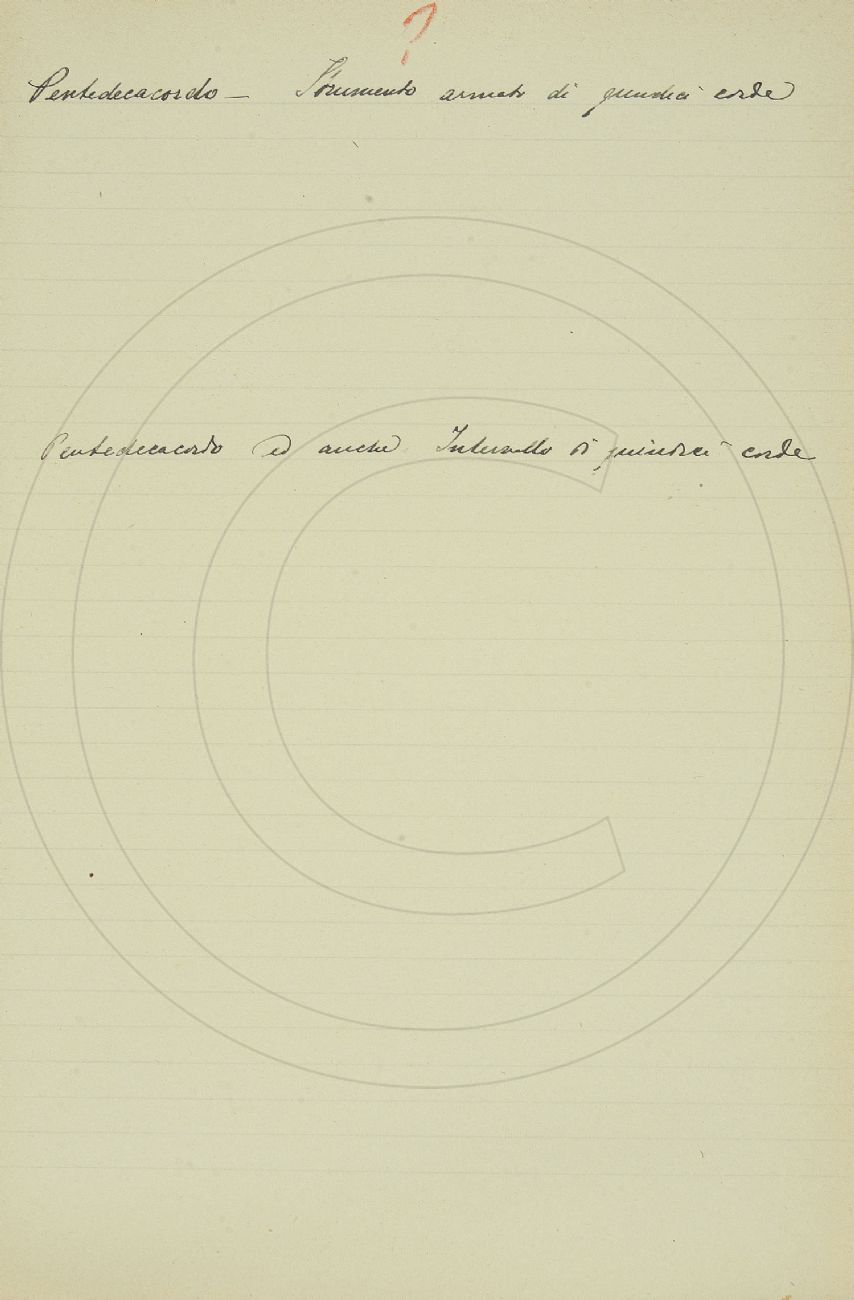 ?
Pentedecacordo — Strumento armato di quindici corde
Pentedecacordo ed anche Intervallo di quindici corde